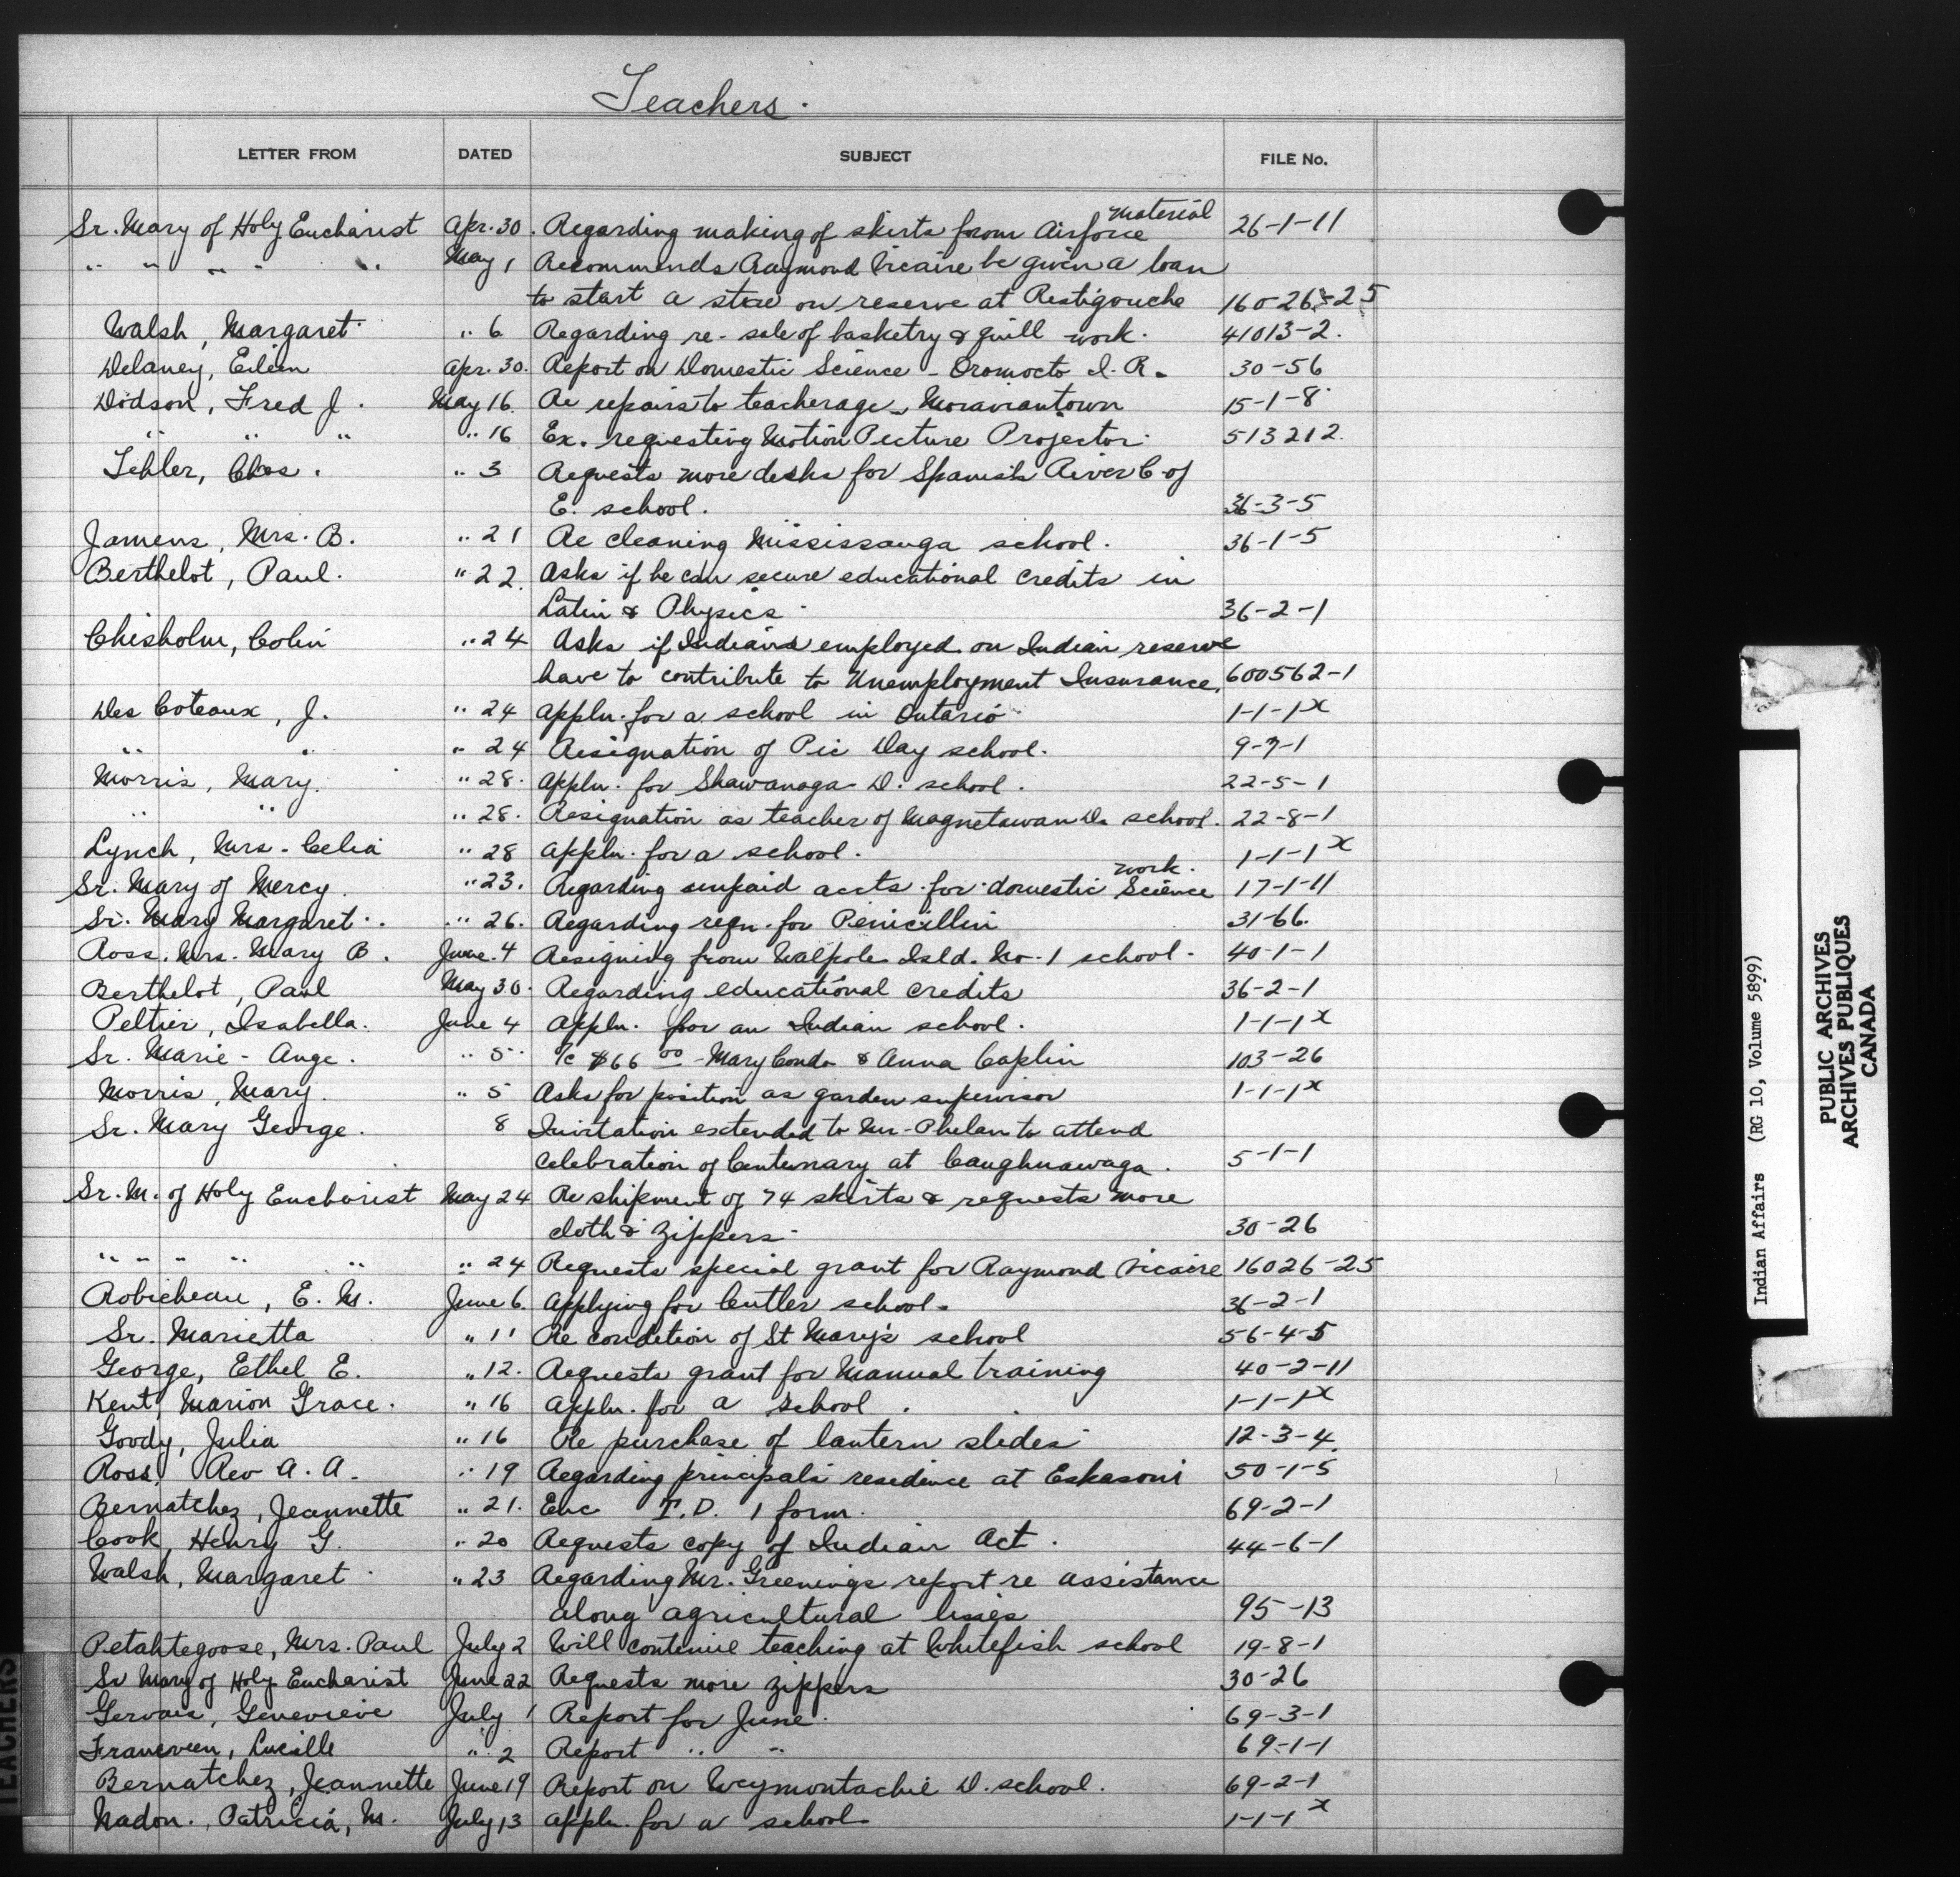 Teachers.
LETTER FROM DATED SUBJECT FILE No.
material
Sr. Mary of Holy Eucharist Apr. 30. Regarding making of skirts from Airforce 26-1-11
" " " " " May 1 Recommends Raymond Vicaire be given a loan
to start a store on reserve at Restigouche 160-26-25
Walsh, Margaret " 6 Regarding re-sale of basketry & quill work. 41013-2.
Delaney, Eileen Apr. 30. Report on Domestic Science - Oromocto I. R. 30-56
Dodson, Fred J. May 16. Re repairs to teacherage - Moraviantown 15-1-8
" " " " 16 Ex. requesting Motion Picture Projector. 513212.
Chas. " 3 Requests more desks for Spanish River C. of
E. school. 36-3-5
Mrs. B. " 21 Re cleaning Mississauga school. 36-1-5
Berthelot, Paul. " 22. Asks if he can secure educational credits in
Latin & Physics. 36-2-1
Chisholm, Colin " 24 Asks if Indians employed on Indian reserve
have to contribute to Unemployment Insurance. 600562-1
Des Coteaux, J. " 24 Appln. for a school in Ontario 1-1-1x
" " " 24 Resignation of Pic Day school. 9-7-1
Morris, Mary. " 28. Appln. for Shawanaga D. school. 22-5-1
" " " 28. Resignation as teacher of Magnetawan D. school. 22-8-1
Lynch, Mrs. Celia " 28 Appln. for a school. 1-1-1x
work.
Sr. Mary of Mercy. " 23. Regarding unpaid accts. for domestic Science 17-1-11
Sr. Mary Margaret. " 26. Regarding reqn. for Penicillin 31-66.
Ross, Mrs. Mary B. June 4 Resigning from Walpole Isld. No. 1 school. 40-1-1
Berthelot, Paul May 30. Regarding educational credits 36-2-1
Peltier, Isabella. June 4 Appln. for an Indian school. 1-1-1x
Sr. Marie-Ange. " 5 $66 00 - Mary Condo & Anna Caplin 103-26
Morris, Mary. " 5 Asks for position as garden supervisor 1-1-1x
Sr. Mary George. 8 Invitation extended to Mr. Phelan to attend
celebration of Centenary at Caughnawaga. 5-1-1
Sr. M. of Holy Eucharist May 24 Re shipment of 74 skirts & requests more
cloth & zippers. 30-26
" " " " " " 24 Requests special grant for Raymond Vicaire 16026-25
Robicheau, E. M. June 6. Applying for Cutler school. 36-2-1
Sr. Marietta " 11 Re condition of St Mary's school 56-4-5
George, Ethel E. " 12. Requests grant for Manual training 40-2-11
Kent, Marion Grace. " 16 Appln. for a school. 1-1-1x
Goody, Julia " 16 Re purchase of lantern slides 12-3-4
Ross, Rev A. A. " 19 Regarding principals residence at Eskasoni 50-1-5
Bernatchez, Jeannette " 21. Enc T.D. 1 form. 69-2-1
Cook, Henry G. " 20 Requests copy of Indian Act. 44-6-1
Walsh, Margaret " 23 Regarding Mr. Greenings report re assistance
along agricultural lines 95-13
Petahtegoose, Mrs. Paul July 2 Will continue teaching at Whitefish school 19-8-1
Sr Mary of Holy Eucharist June 22 Requests more zippers 30-26
Gervais, Genevieve July 1 Report for June. 69-3-1
Lucille " 2 Report " " 69-1-1
Bernatchez, Jeannette June 19 Report on Weymontachie D. school. 69-2-1
Nadon, Patricia, M. July 13 Appln. for a school 1-1-1x
TEACHERS
Indian Affairs (RG 10, Volume 5899)
PUBLIC ARCHIVES
ARCHIVES PUBLIQUES
CANADA